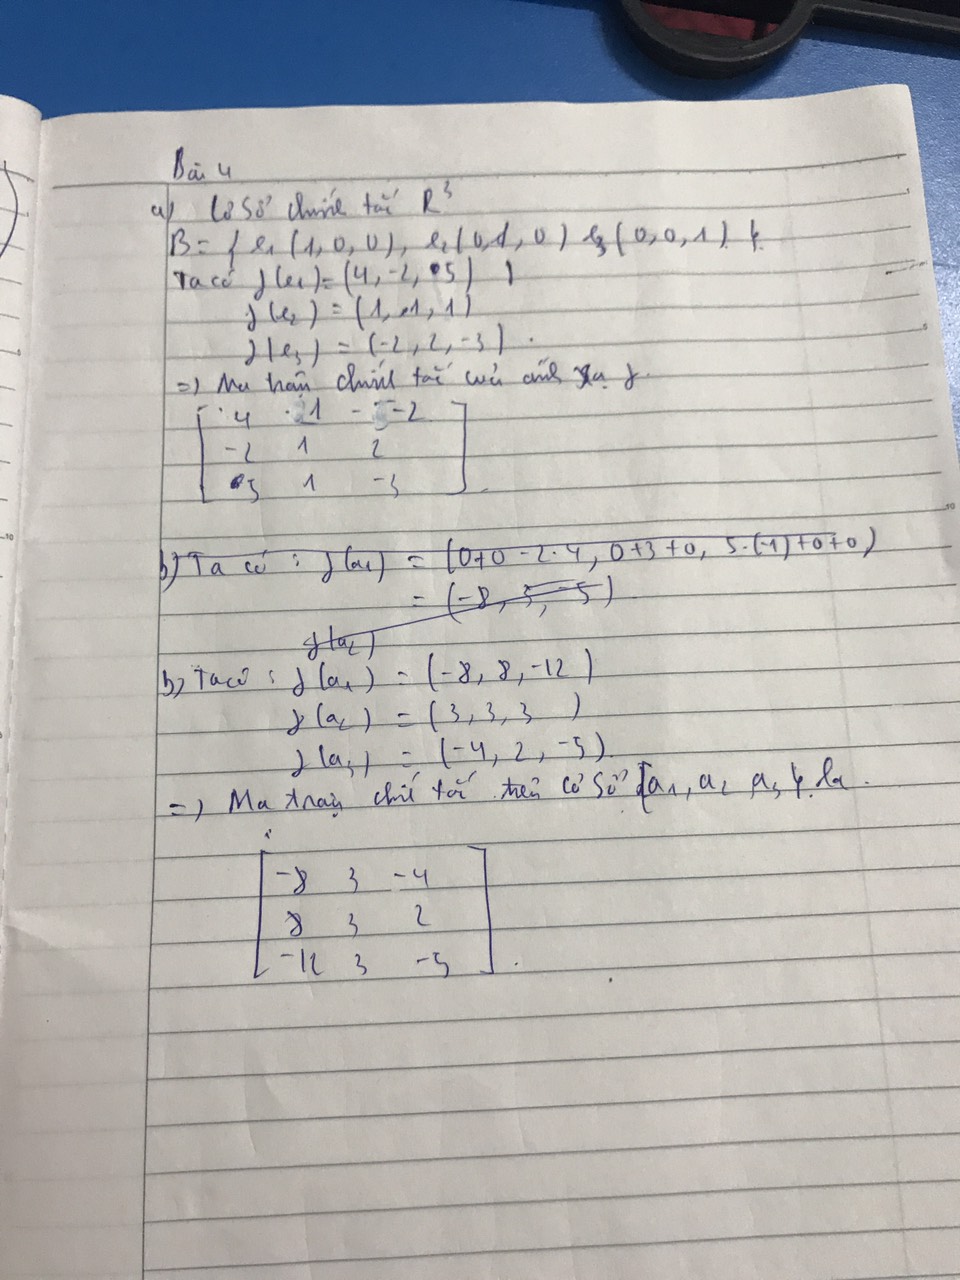 Bài 4
a) Cơ sở chính tắc R³
B = { e₁ (1,0,0), e₂ (0,1,0) e₃ (0,0,1) }.
Ta có f(e₁) = (4, -2, 5)
f(e₂) = (1, 1, 1)
f(e₃) = (-2, 2, -3).
=> Ma trận chính tắc của ánh xạ f.
4 1 -2
-2 1 2
5 1 -3
b) Ta có : f(a₁) = (0+0-2.4, 0+3+0, 5.(-1)+0+0)
= (-8, 3, -5)
f(a₂)
b) Ta có : f(a₁) = (-8, 8, -12)
f(a₂) = (3, 3, 3)
f(a₃) = (-4, 2, -5)
=> Ma trận chí tắc trên cơ sở {a₁, a₂ a₃ } là.
-8 3 -4
8 3 2
-12 3 -5